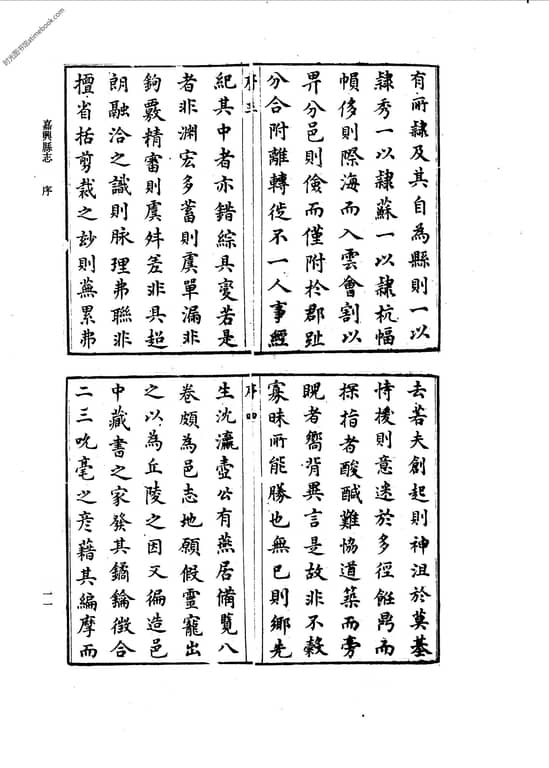 时光图书馆atimebook.com
嘉興縣志 序
有所隸及其自為縣則一以
隸秀一以隸蘇一以隸杭幅
幀侈則際海而入雲會割以
畀分邑則儉而僅附於郡趾
分合附離轉徙不一人事經
序三
紀其中者亦錯綜具變若是
者非淵宏多蓄則虞單漏非
鉤覈精審則虞舛差非具超
朗融洽之識則脉理弗聯非
擅省括剪裁之玅則蕪累弗
去若夫創起則神沮於莫基
恃援則意迷於多徑飪鼎而
探指者酸醎難恊道築而旁
睨者嚮背異言是故非不穀
寡昧所能勝也無已則鄉先
序四
生沈瀛壺公有燕居備覽八
卷頗為邑志地願假靈寵出
之以為丘陵之因又徧造邑
中藏書之家發其鐍鑰徵合
二三吮毫之彥藉其編摩而
一一